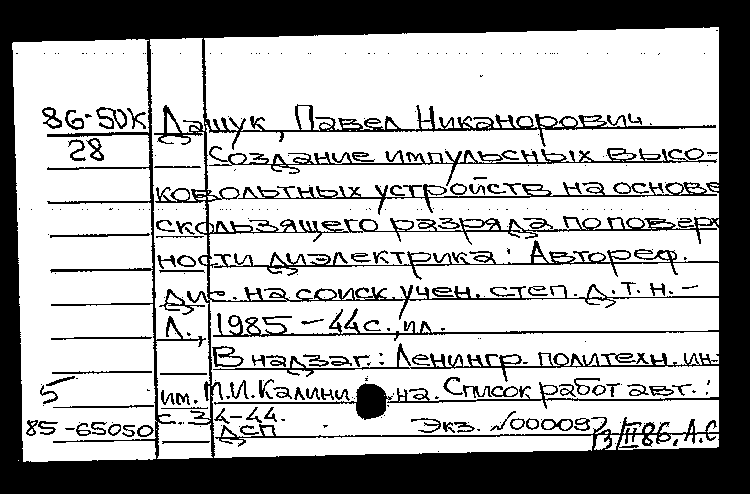 86-50к Дащук, Павел Никанорович.
28 Создание импульсных высо-
ковольтных устройств на основе
скользящего разряда по поверх
ности диэлектрика: Автореф.
дис. на соиск. учен. степ. д.т.н. -
Л., 1985 - 44 с., ил.
В надзаг.: Ленингр. политехн. ин-
5 им. М.И. Калинина. Список работ авт.:
с. 34-44.
85-65050 ДСП Экз. №000097
13/II 86. А.С